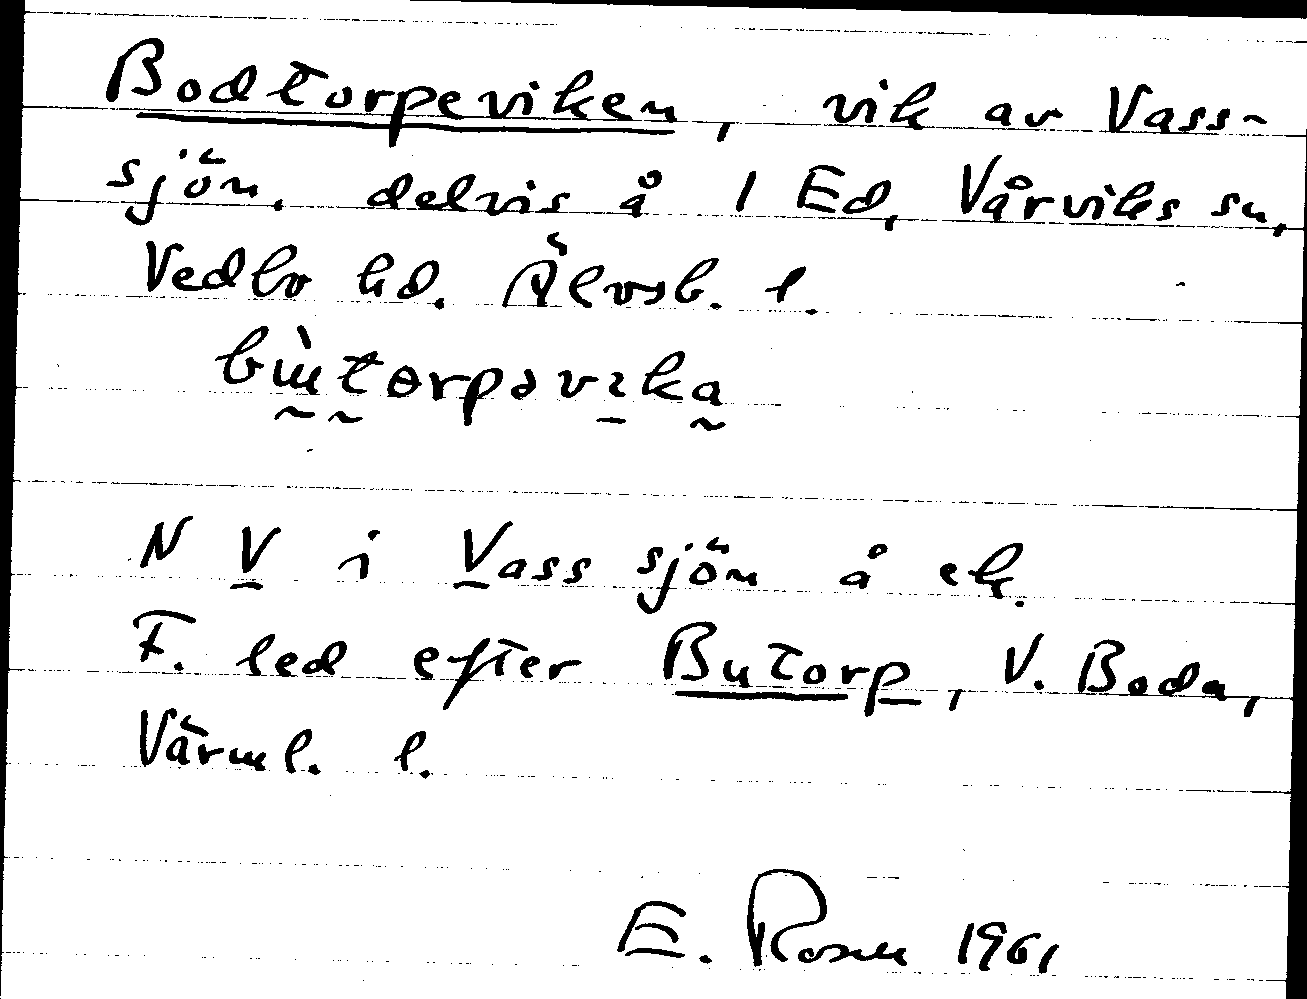 Bodtorpeviken, vik av Vass-
sjön, delvis å 1 Ed, Vårviks sn,
Vedbo hd. Älvsb. l.
bɯ̀torpəvika
N V i Vasssjön å ek.
F. led efter Butorp, V. Boda,
Värml. l.
E. Rosen 1961